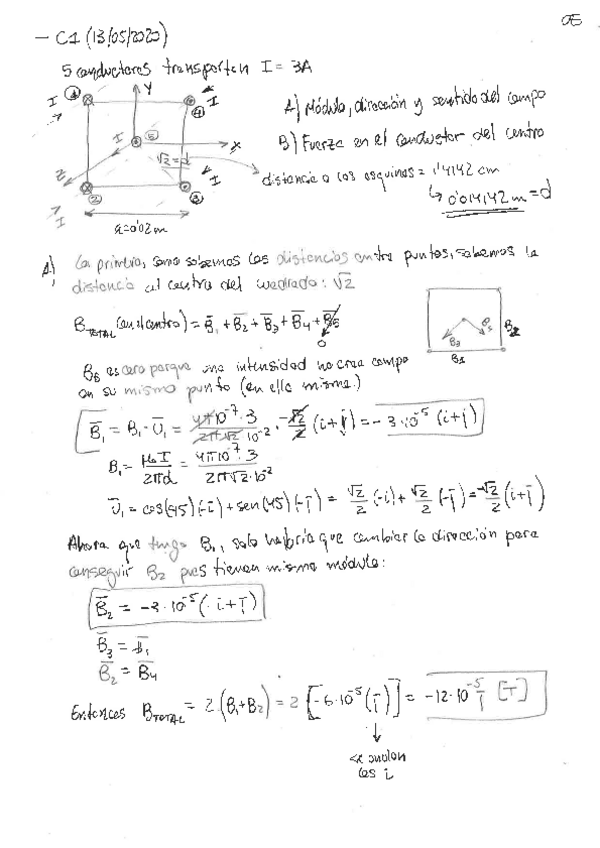 OE
- C1 (13/05/2020)
5 conductores transportan I = 3A
A) Módulo, dirección y sentido del campo
B) Fuerza en el conductor del centro
distancia a las esquinas = 1'4142 cm
↳ 0'014142 m = d
I ① y ④ I
I ⑤ x
√2 = d
z
② ③ I
I
a = 0'02 m
A) Lo primero, como sabemos las distancias entre puntos, sabemos la
distancia al centro del cuadrado: √2
B̄TOTAL (en el centro) = B̄1 + B̄2 + B̄3 + B̄4 + B̄5
0
B2 B1 B2
B1
B5 es cero porque una intensidad no crea campo
en su mismo punto (en ella misma.)
B̄1 = B1 · Ū1 = 4π10^-7 · 3 / 2π√2 · 10^-2 · -√2/2 (i+j) = -3·10^-5 (i+j)
B1 = μ0 I / 2πd = 4π10^-7 · 3 / 2π√2·10^-2
Ū1 = cos(45)(-i) + sen(45)(-j) = √2/2 (-i) + √2/2 (-j) = -√2/2 (i+j)
Ahora que tengo B1, solo habría que cambiar la dirección para
conseguir B2 pues tienen mismo módulo:
B̄2 = -3·10^-5 (-i+j)
B̄3 = B̄1
B̄2 = B̄4
Entonces B̄TOTAL = 2·(B1+B2) = 2 [-6·10^-5 (j)] = -12·10^-5 j [T]
↓
se anulan
las i